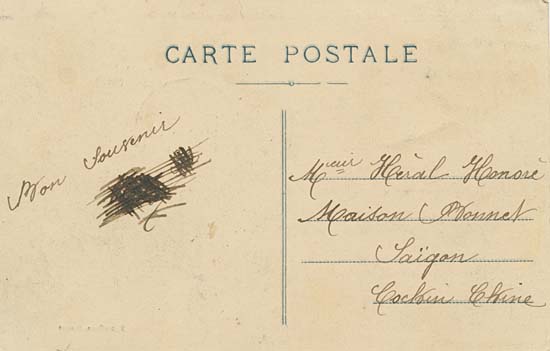 CARTE POSTALE
Bon Souvenir
Mʳ ͤᵘʳ Hèral Honoré
Maison Bonnet
Saïgon
Cochin Chine